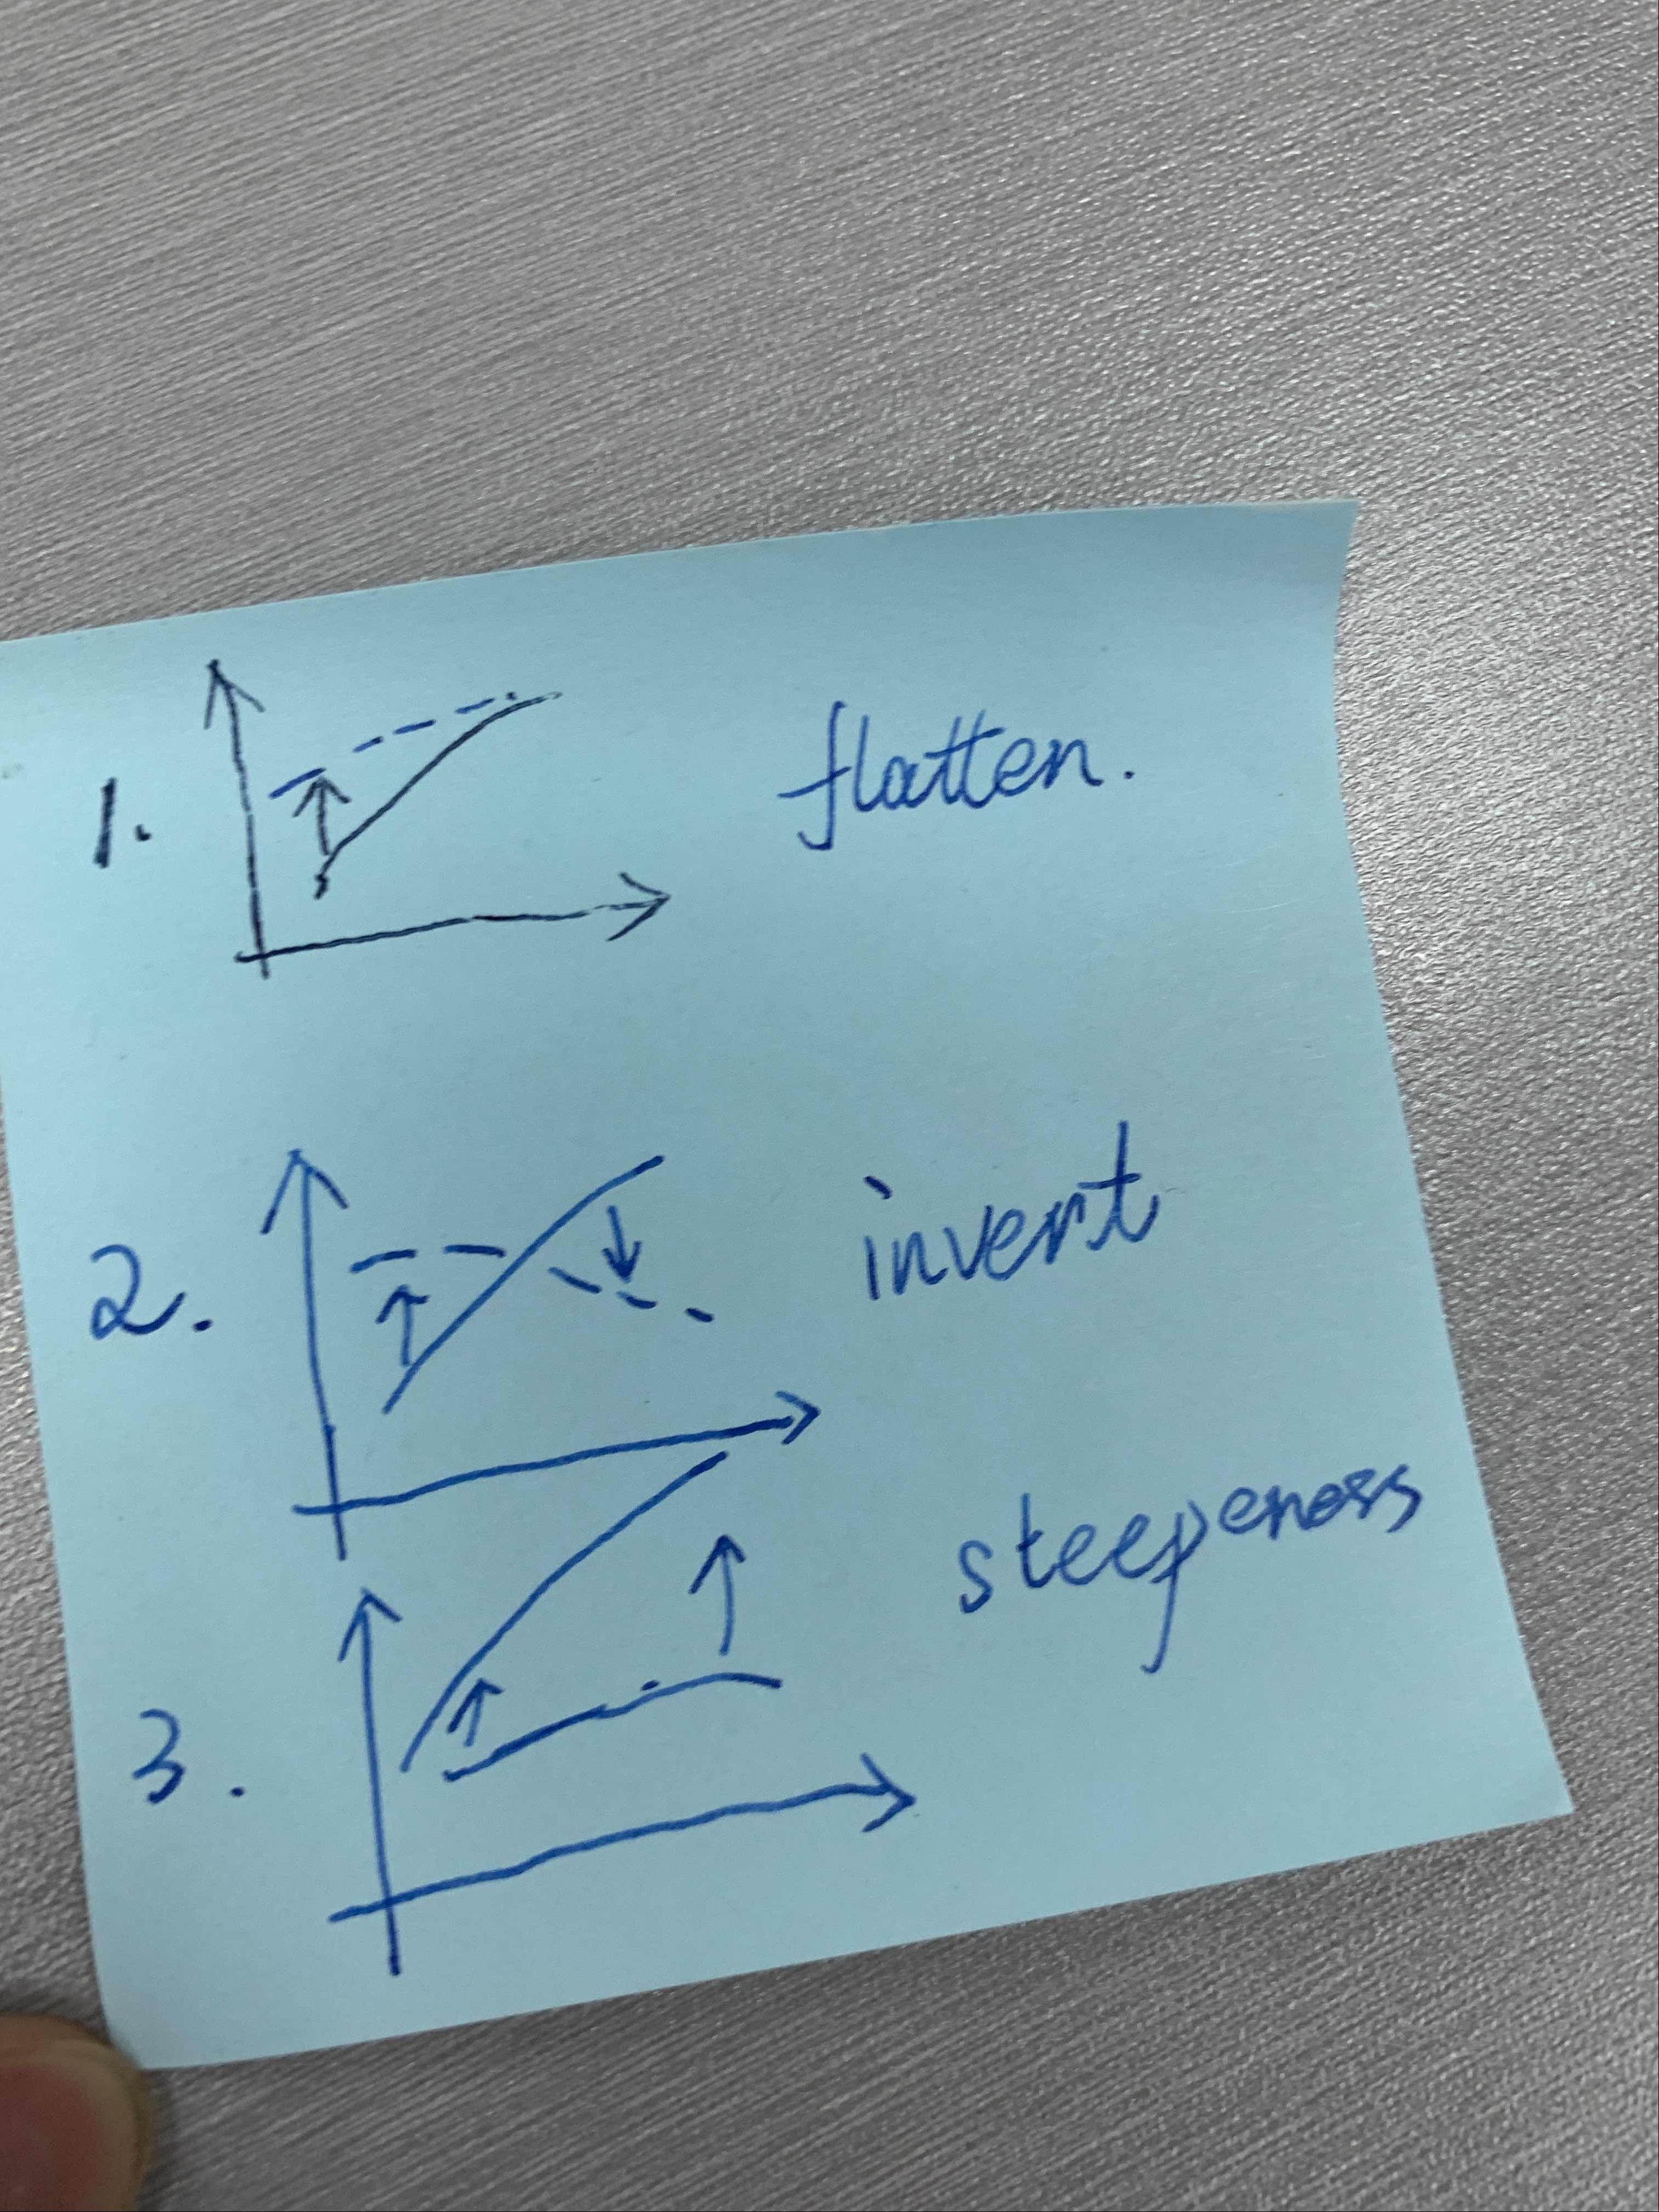 1. flatten.
2. invert
3. steepeness